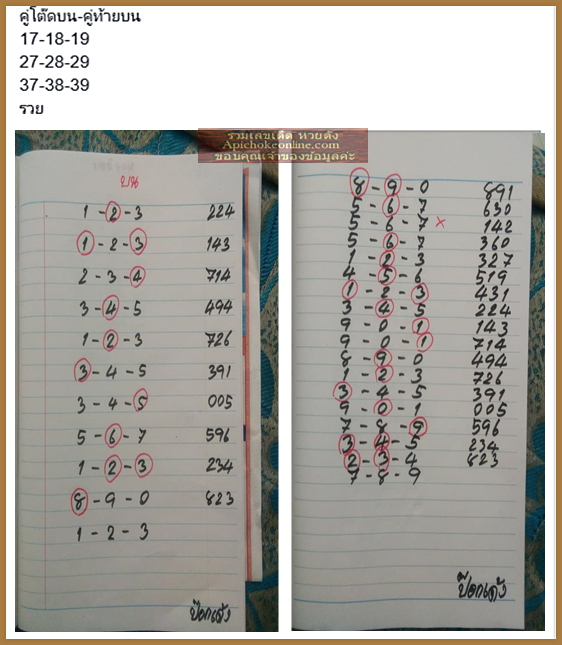 คู่โต๊ดบน-คู่ท้ายบน
17-18-19
27-28-29
37-38-39
รวย
รวมเลขเด็ด หวยดัง
Apichokeonline.com
ขอบคุณเจ้าของข้อมูลค่ะ
บน
1 - 2 - 3 224
1 - 2 - 3 143
2 - 3 - 4 714
3 - 4 - 5 494
1 - 2 - 3 726
3 - 4 - 5 391
3 - 4 - 5 005
5 - 6 - 7 596
1 - 2 - 3 234
8 - 9 - 0 823
1 - 2 - 3
ป๊อกเด้ง
8 - 9 - 0 891
5 - 6 - 7 630
5 - 6 - 7 × 142
5 - 6 - 7 360
1 - 2 - 3 327
4 - 5 - 6 519
1 - 2 - 3 431
3 - 4 - 5 224
9 - 0 - 1 143
9 - 0 - 1 714
8 - 9 - 0 494
1 - 2 - 3 726
3 - 4 - 5 391
9 - 0 - 1 005
7 - 8 - 9 596
3 - 4 - 5 234
2 - 3 - 4 823
7 - 8 - 9
ป๊อกเด้ง